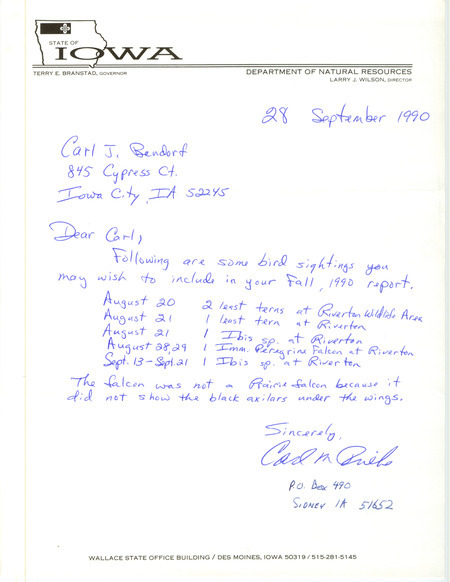 STATE OF
IOWA
TERRY E. BRANSTAD, GOVERNOR
DEPARTMENT OF NATURAL RESOURCES
LARRY J. WILSON, DIRECTOR
28 September 1990
Carl J. Bendorf
845 Cypress Ct.
Iowa City, IA 52245
Dear Carl,
Following are some bird sightings you
may wish to include in your Fall, 1990 report.
August 20 2 least terns at Riverton Wildlife Area
August 21 1 least tern at Riverton
August 21 1 Ibis sp. at Riverton
August 28,29 1 Imm. Peregrine Falcon at Riverton
Sept. 13 - Sept. 21 1 Ibis sp. at Riverton
The falcon was not a Prairie falcon because it
did not show the black axilars under the wings.
Sincerely,
Carl M. Priebe
P.O. Box 490
Sidney IA 51652
WALLACE STATE OFFICE BUILDING / DES MOINES, IOWA 50319 / 515-281-5145